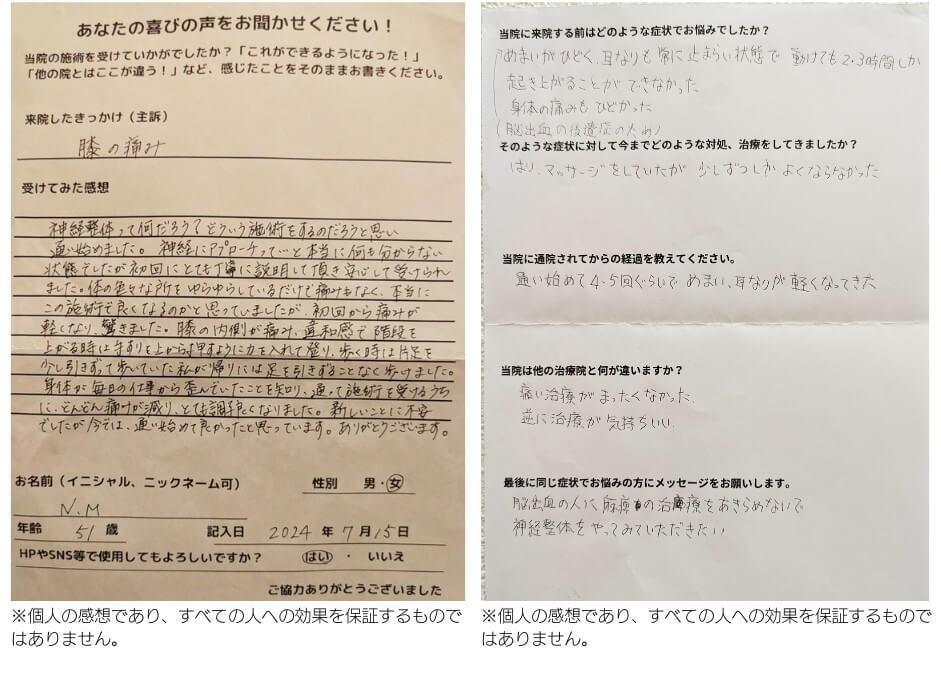 あなたの喜びの声をお聞かせください！
当院の施術を受けていかがでしたか？「これができるようになった！」
「他の院とはここが違う！」など、感じたことをそのままお書きください。
来院したきっかけ（主訴）
膝の痛み
受けてみた感想
神経整体って何だろう？どういう施術をするのだろうと思い
通い始めました。神経にアプローチっていっと本当に何も分からない
状態でしたが初回にとても丁寧に説明して頂き安心して受けられ
ました。体の色々な所をゆらゆらしているだけで痛みもなく、本当に
この施術で良くなるのかと思っていましたが、初回から痛みが
軽くなり、驚きました。膝の内側が痛み、違和感で階段を
上がる時は手すりを上から押すように力を入れて登り、歩く時は片足を
少し引きずって歩いていた私が帰りには足を引きずることなく歩けました。
身体が毎日の仕事から歪んでいたことを知り、通って施術を受けるうち
に、どんどん痛みが減り、とても調子良くなりました。新しいことに不安
でしたが今では、通い始めて良かったと思っています。ありがとうございます。
お名前（イニシャル、ニックネーム可） 性別 男・女
N.M
年齢 51 歳 記入日 2024 年 7 月 15 日
HPやSNS等で使用してもよろしいですか？ はい ・ いいえ
ご協力ありがとうございました
※個人の感想であり、すべての人への効果を保証するもので
はありません。
当院に来院する前はどのような症状でお悩みでしたか？
めまいがひどく、耳なりも常に止まらい状態で 動けても2・3時間しか
起き上がることができなかった
身体の痛みもひどかった
（脳出血の後遺症のため）
そのような症状に対して今までどのような対処、治療をしてきましたか？
はり、マッサージをしていたが 少しずつしか よくならなかった
当院に通院されてからの経過を教えてください。
通い始めて4・5回ぐらいで めまい、耳なりが 軽くなってきた
当院は他の治療院と何が違いますか？
痛い治療が まったくなかった、
逆に治療が気持ちいい。
最後に同じ症状でお悩みの方にメッセージをお願いします。
脳出血の人に、麻痺の治療をあきらめないで
神経整体をやってみていただきたい
※個人の感想であり、すべての人への効果を保証するもので
はありません。